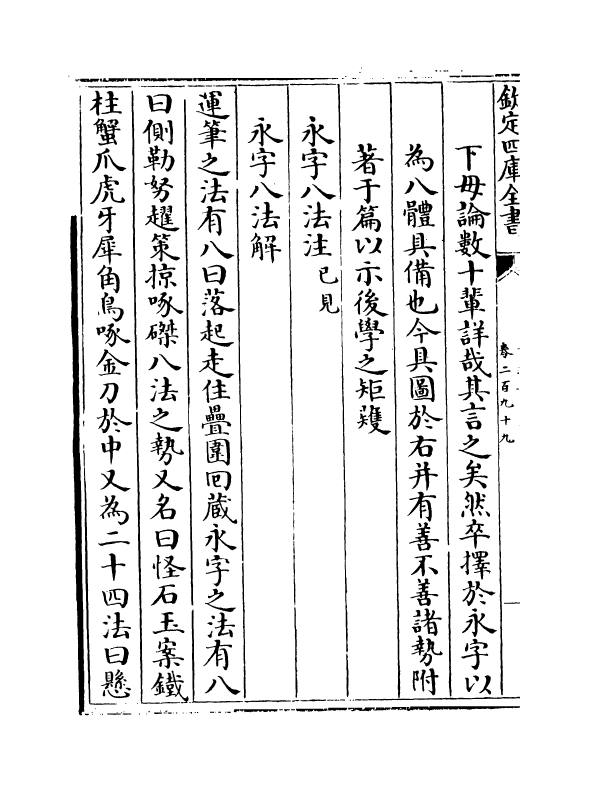 欽定四庫全書
卷二百九十九
下毋論數十輩詳哉其言之矣然卒擇於永字以
為八體具備也今具圖於右并有善不善諸勢附
著于篇以示後學之矩矱
永字八法注已見
永字八法解
運筆之法有八曰落起走住疊圍回蔵永字之法有八
曰側勒努趯策掠啄磔八法之勢又名曰怪石玉案鐵
柱蟹爪虎牙犀角鳥啄金刀於中又為二十四法曰懸